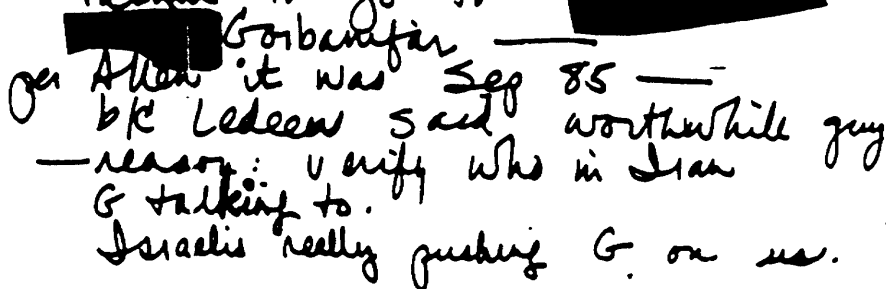 Gorbanifar —
per Allen it was Sep 85 —
b/c Ledeen said worthwhile guy
— reason: verify who in Iran
G talking to.
Israelis really pushing G. on us.